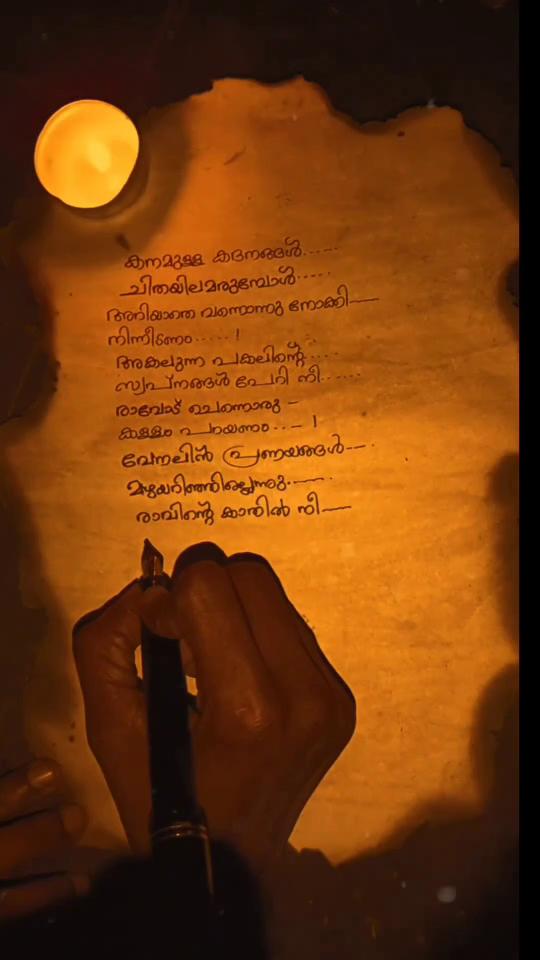 കനമുള്ള കദനങ്ങൾ......
ചിതയിലമരുമ്പോൾ.....
അറിയാതെ വന്നൊന്നു നോക്കി—
നിന്നീടണം......!
അകലുന്ന പകലിന്റെ.....
സ്വപ്നങ്ങൾ പേറി നീ......
രാവോട് ചെന്നൊരു –
കള്ളം പറയണം...– !
വേനലിൽ പ്രണയങ്ങൾ—-.
മഴയറിഞ്ഞില്ലെന്നു.——.
രാവിന്റെ കാതിൽ നീ—